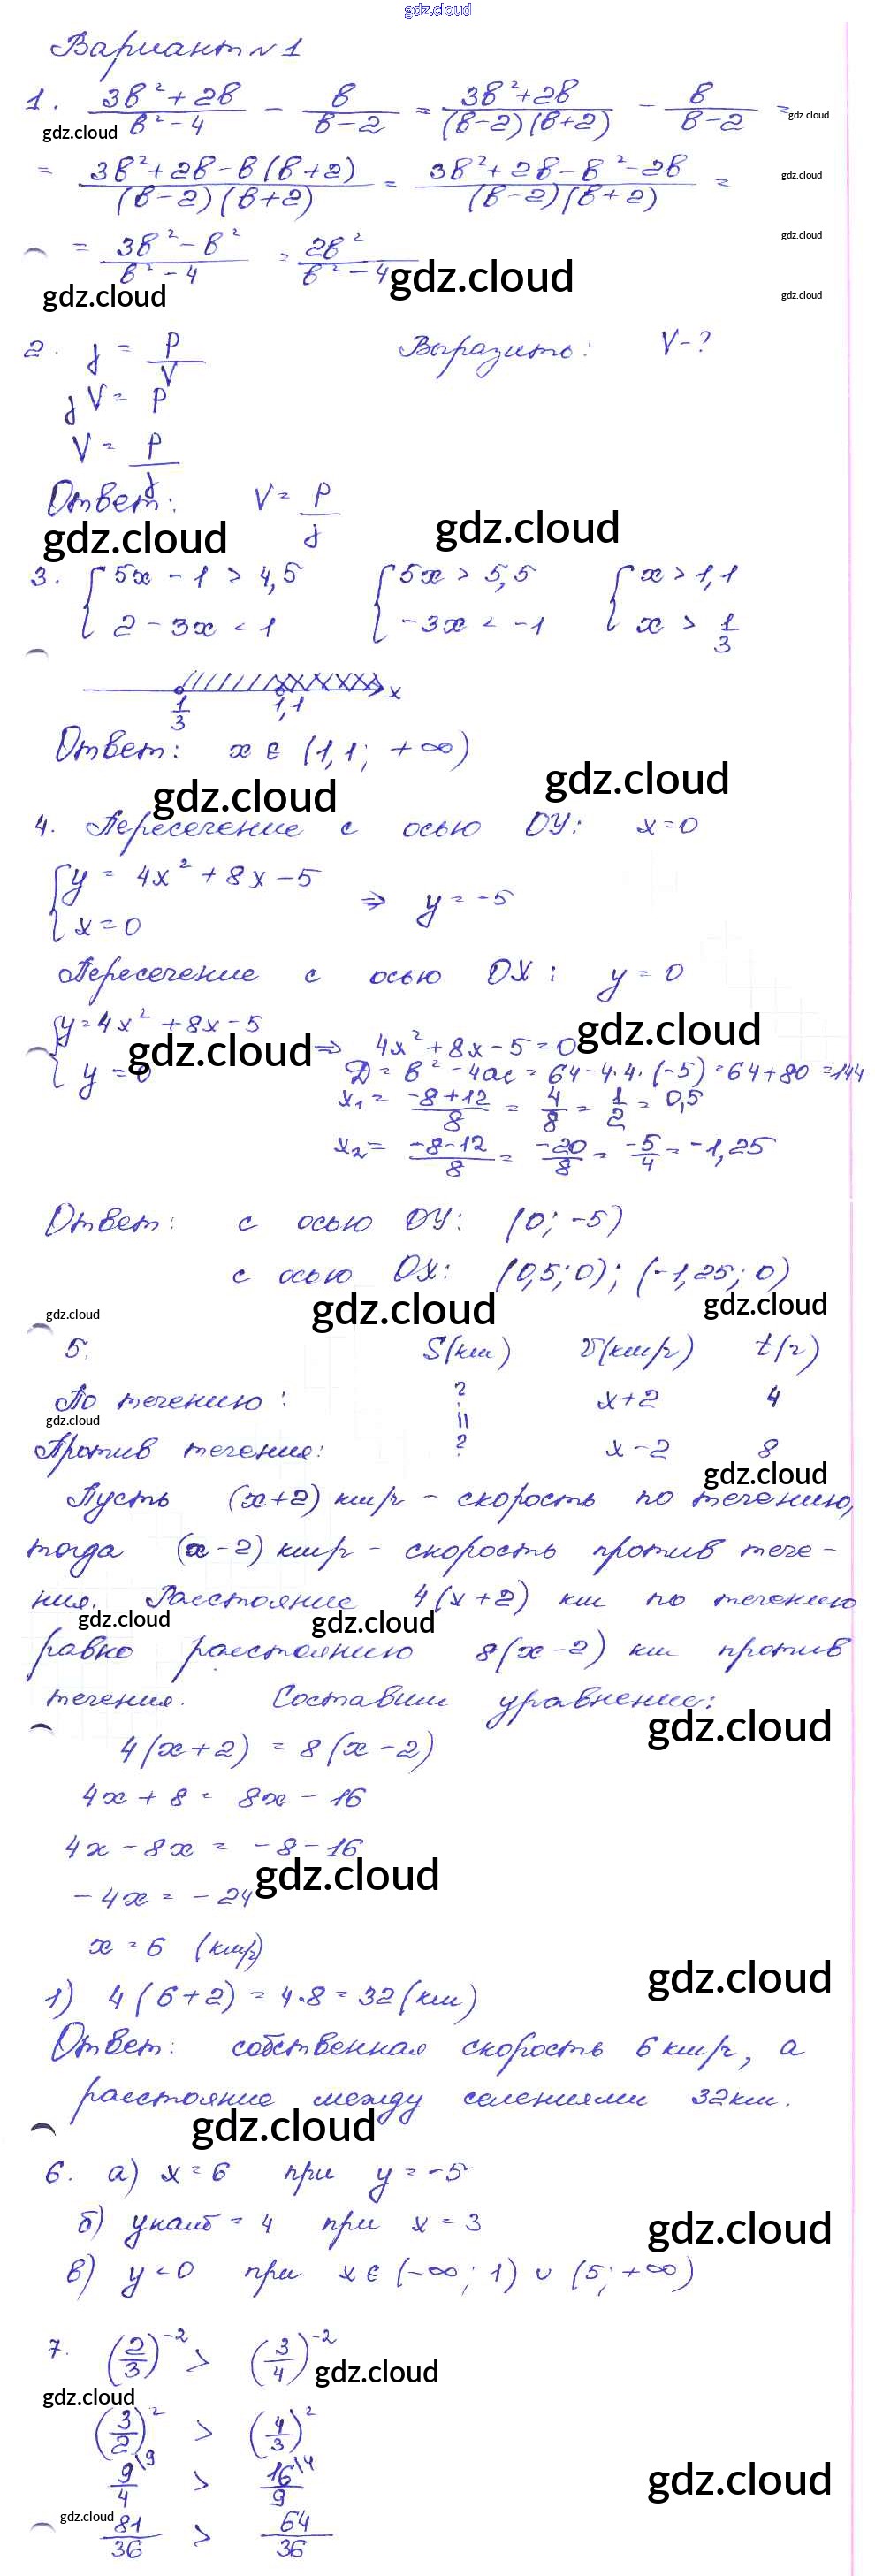 gdz.cloud
Вариант №1
1. (3в²+2в)/(в²-4) - в/(в-2) = (3в²+2в)/((в-2)(в+2)) - в/(в-2) =
gdz.cloud gdz.cloud
= (3в²+2в-в(в+2))/((в-2)(в+2)) = (3в²+2в-в²-2в)/((в-2)(в+2)) =
gdz.cloud
gdz.cloud
= (3в²-в²)/(в²-4) = 2в²/(в²-4)
gdz.cloud gdz.cloud gdz.cloud
2. j = P/V Выразить: V-?
jV = P
V = P/j
Ответ: V = P/j
gdz.cloud gdz.cloud
3. { 5x - 1 > 4,5 { 5x > 5,5 { x > 1,1
2 - 3x < 1 -3x < -1 x > 1/3
1/3 1,1 x
Ответ: x ∈ (1,1; +∞)
gdz.cloud gdz.cloud
4. Пересечение с осью OY: x=0
{ y = 4x² + 8x - 5
x = 0 ⇒ y = -5
Пересечение с осью OX: y = 0
{ y = 4x² + 8x - 5
y = 0 ⇒ 4x² + 8x - 5 = 0
gdz.cloud gdz.cloud
D = в² - 4ac = 64 - 4·4·(-5) = 64 + 80 = 144
x₁ = (-8+12)/8 = 4/8 = 1/2 = 0,5
x₂ = (-8-12)/8 = -20/8 = -5/4 = -1,25
Ответ: с осью OY: (0; -5)
с осью OX: (0,5; 0); (-1,25; 0)
gdz.cloud gdz.cloud gdz.cloud
5. S(км) V(км/ч) t(ч)
По течению: ? x+2 4
gdz.cloud =
Против течения: ? x-2 8
gdz.cloud
Пусть (x+2) км/ч - скорость по течению,
тогда (x-2) км/ч - скорость против тече-
ния. Расстояние 4(x+2) км по течению
gdz.cloud gdz.cloud
равно расстоянию 8(x-2) км против
течения. Составим уравнение:
gdz.cloud
4(x+2) = 8(x-2)
4x + 8 = 8x - 16
4x - 8x = -8 - 16
gdz.cloud
-4x = -24
x = 6 (км/ч)
gdz.cloud
1) 4(6+2) = 4·8 = 32 (км)
Ответ: собственная скорость 6 км/ч, а
расстояние между селениями 32 км.
gdz.cloud
6. а) x = 6 при y = -5
б) yнаиб = 4 при x = 3
gdz.cloud
в) y < 0 при x ∈ (-∞; 1) ∪ (5; +∞)
7. (2/3)⁻² > (3/4)⁻²
gdz.cloud
gdz.cloud
(3/2)² > (4/3)²
9/4 \9 > 16/9 \4
gdz.cloud
gdz.cloud
81/36 > 64/36